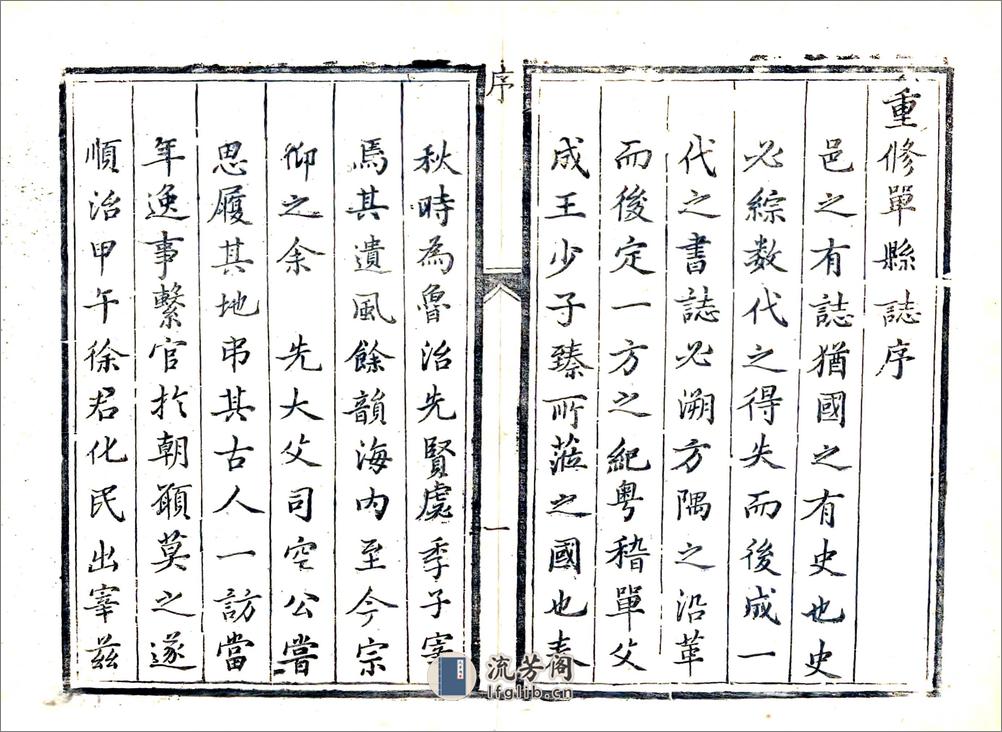 重修單縣誌序
邑之有誌猶國之有史也史
必綜数代之得失而後成一
代之書誌必溯方隅之沿革
而後定一方之紀粤稽單父
成王少子臻所蒞之國也春
序
一
秋時為魯治先賢虙季子宰
焉其遺風餘韻海内至今宗
仰之余 先大父司空公嘗
思履其地弔其古人一訪當
年逸事繫官於朝願莫之遂
順治甲午徐君化民出宰茲
流芳阁
lfglib.cn